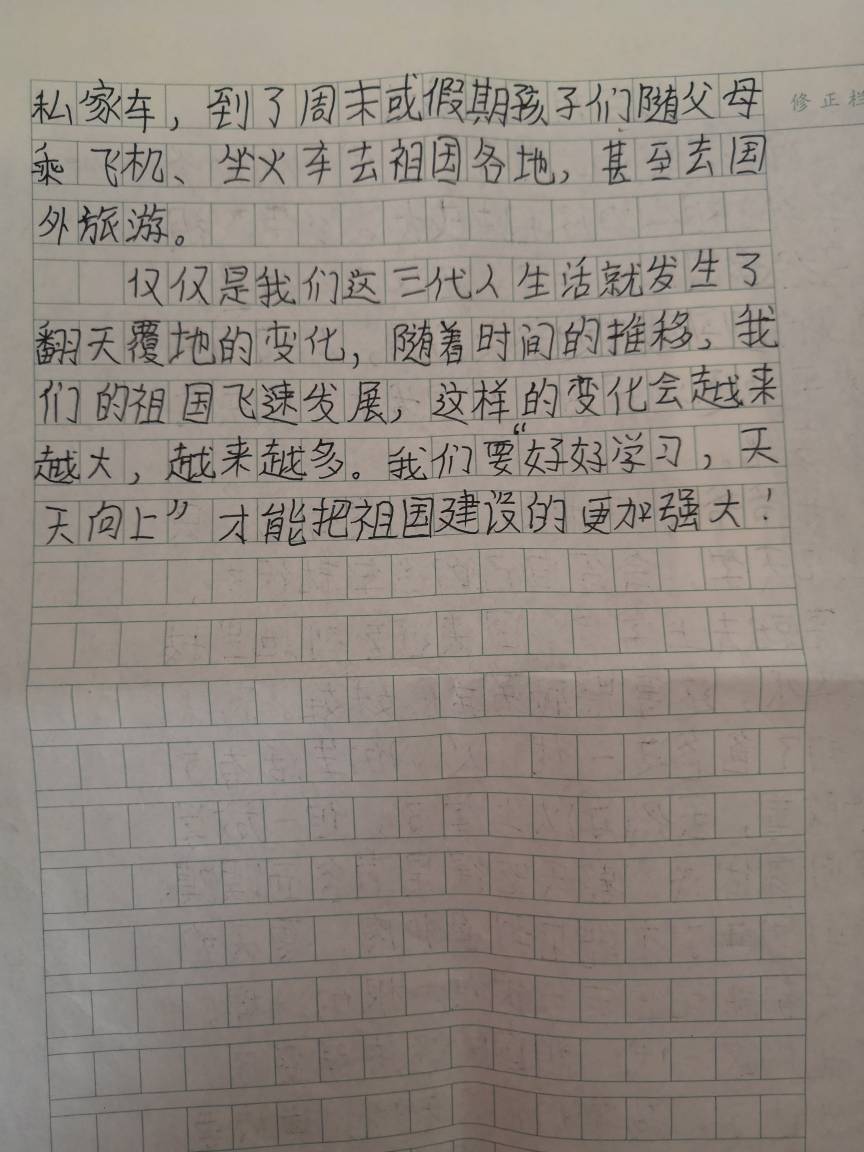 私家车，到了周末或假期孩子们随父母
修正栏
乘飞机、坐火车去祖国各地，甚至去国
外旅游。
仅仅是我们这三代人生活就发生了
翻天覆地的变化，随着时间的推移，我
们的祖国飞速发展，这样的变化会越来
越大，越来越多。我们要“好好学习，天
天向上”才能把祖国建设的更加强大！